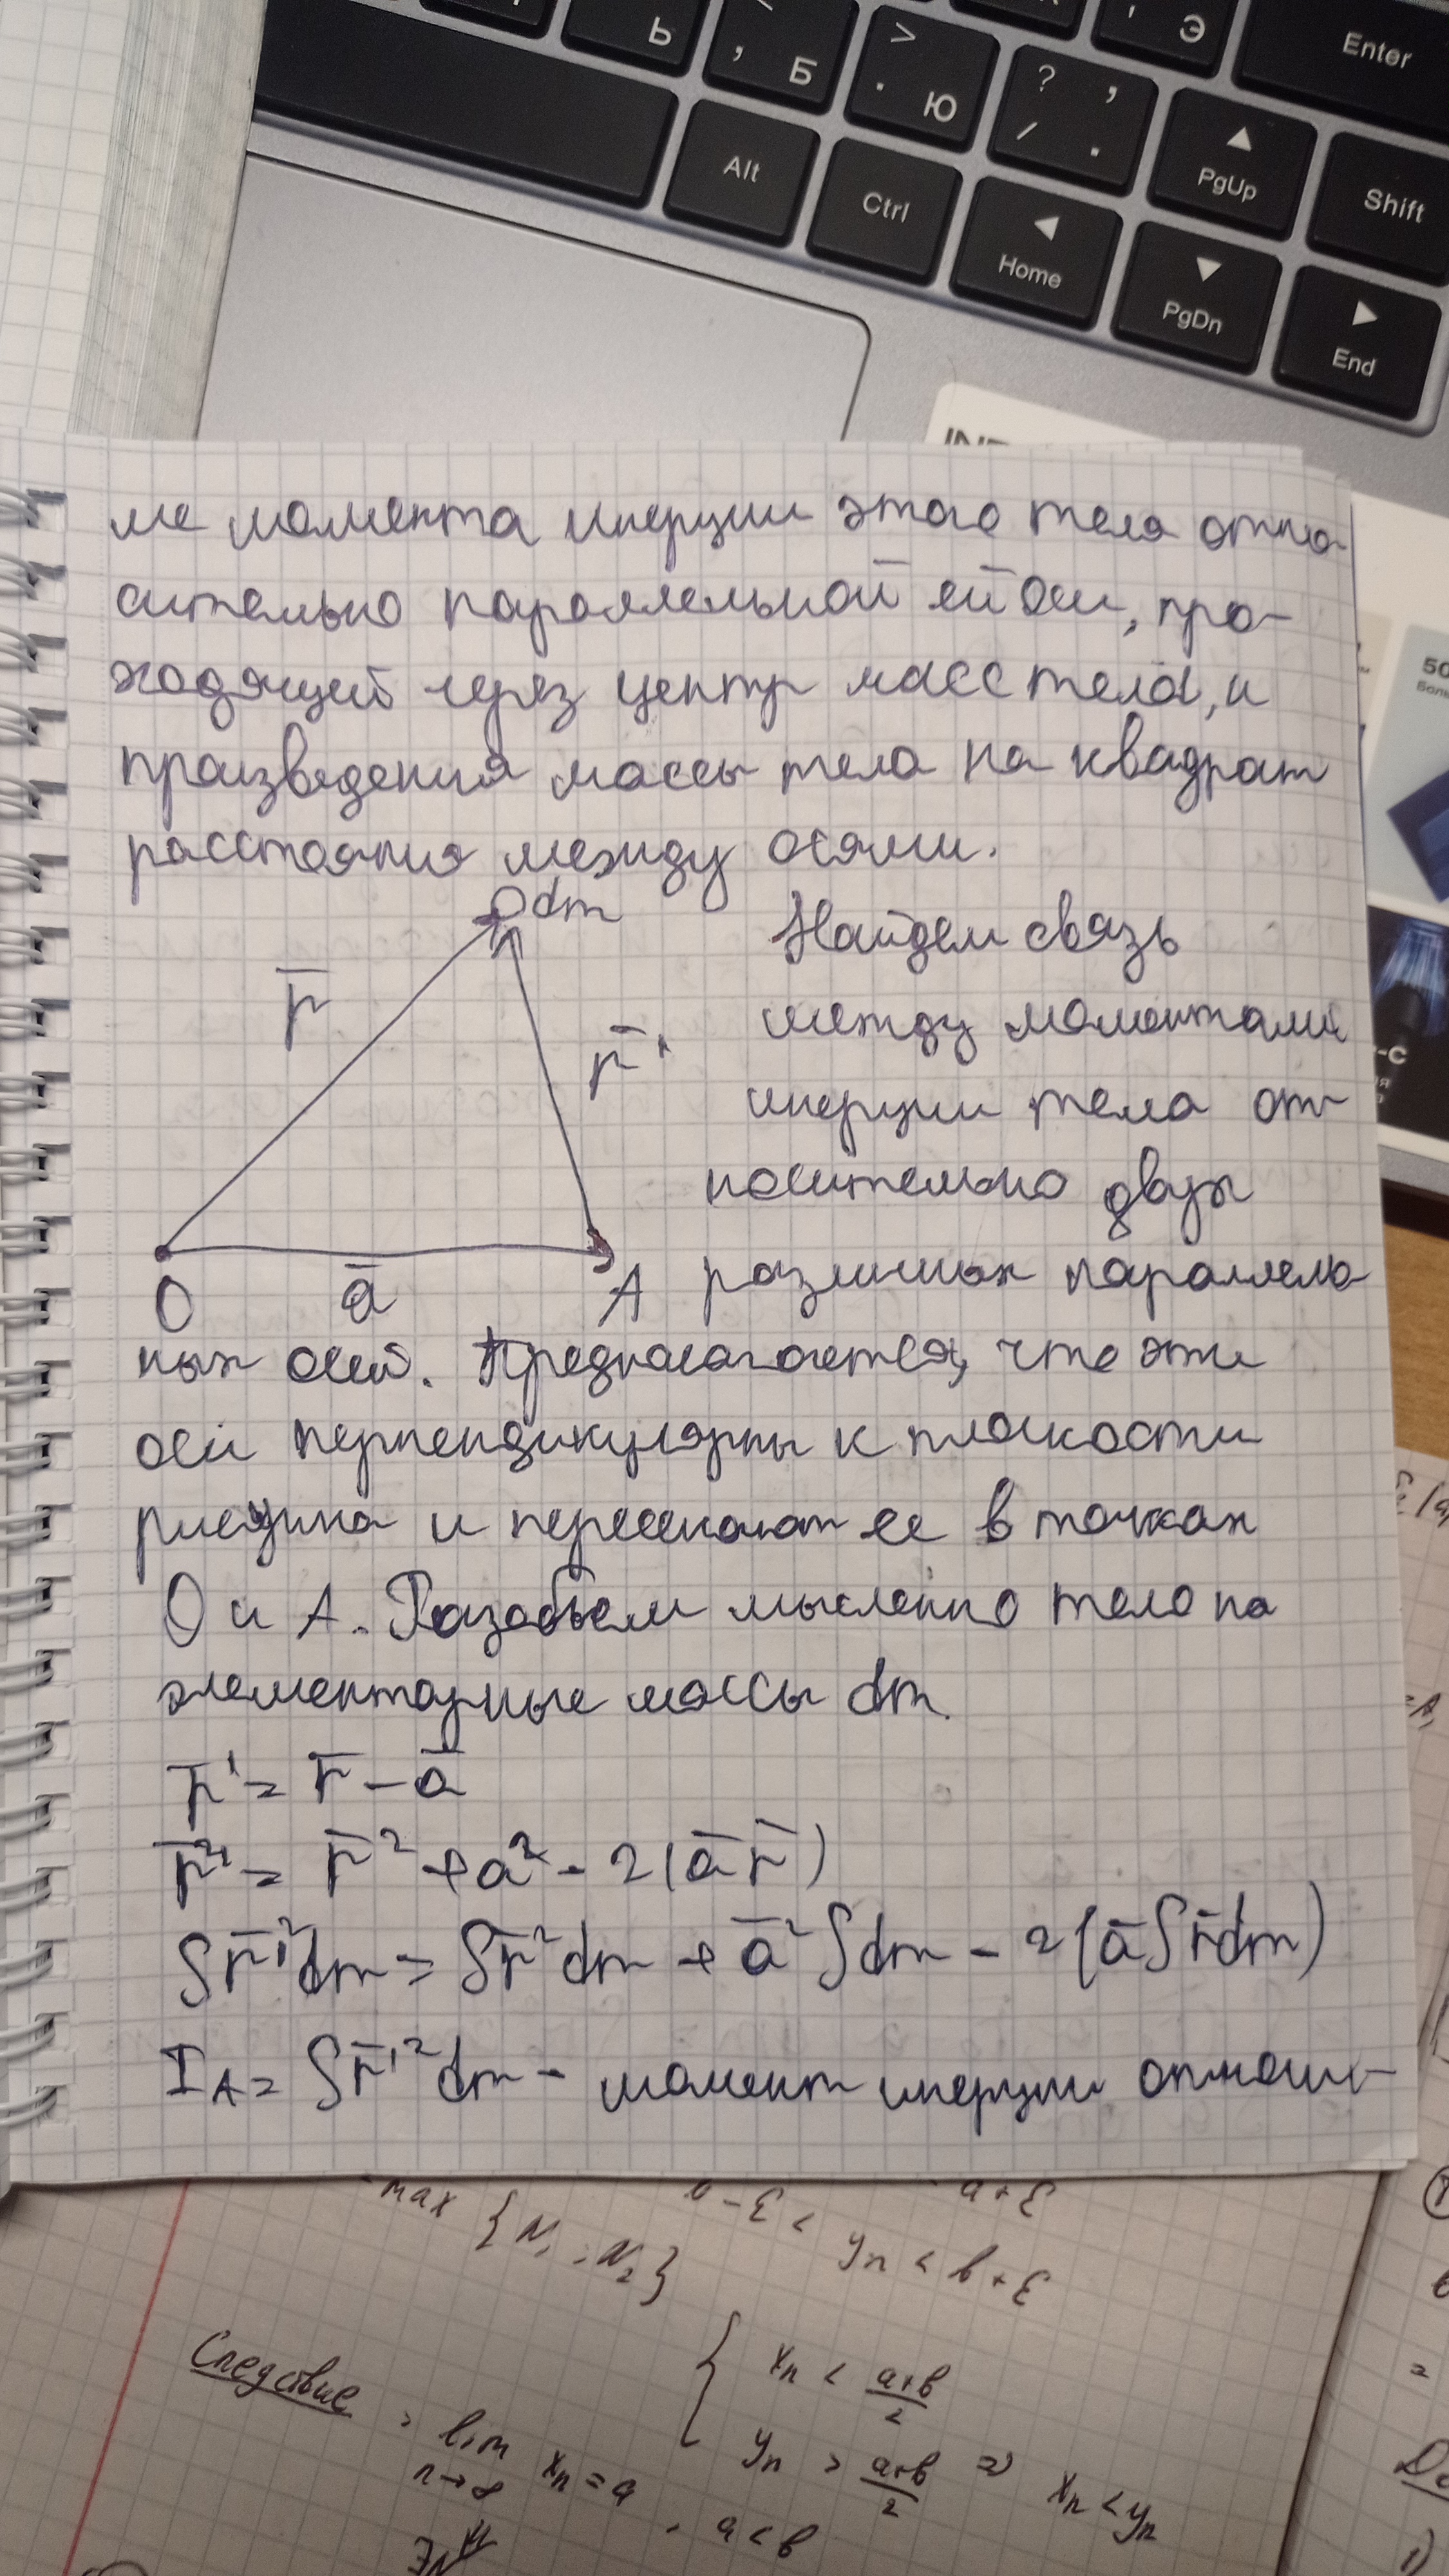 Ь
, Б
> . Ю
Э
? , / .
Enter
Alt
Ctrl
PgUp
Shift
Home
PgDn
End
ме момента инерции этого тела отно-
сительно параллельной ей оси, про-
ходящей через центр масс тела, и
произведения массы тела на квадрат
расстояния между осями.
dm
r̄
r̄'
O
ā
A
Найдем связь
между моментами
инерции тела от-
носительно двух
различных параллель
ных осей. Предполагается, что эти
оси перпендикулярны к плоскости
рисунка и пересекают ее в точках
O и A. Разобьем мысленно тело на
элементарные массы dm.
r̄' = r̄ - ā
r̄²' = r̄² + a² - 2(ā r̄)
∫r̄'²dm = ∫r̄²dm + ā²∫dm - 2(ā∫r̄dm)
I_A = ∫r̄'²dm - момент инерции относи-
max {N₁; N₂}
a+ε
yₙ < b+ε
Следствие
lim xₙ = a
n→∞
a < b
{ xₙ < (a+b)/2
yₙ > (a+b)/2 ⇒ xₙ < yₙ
1)